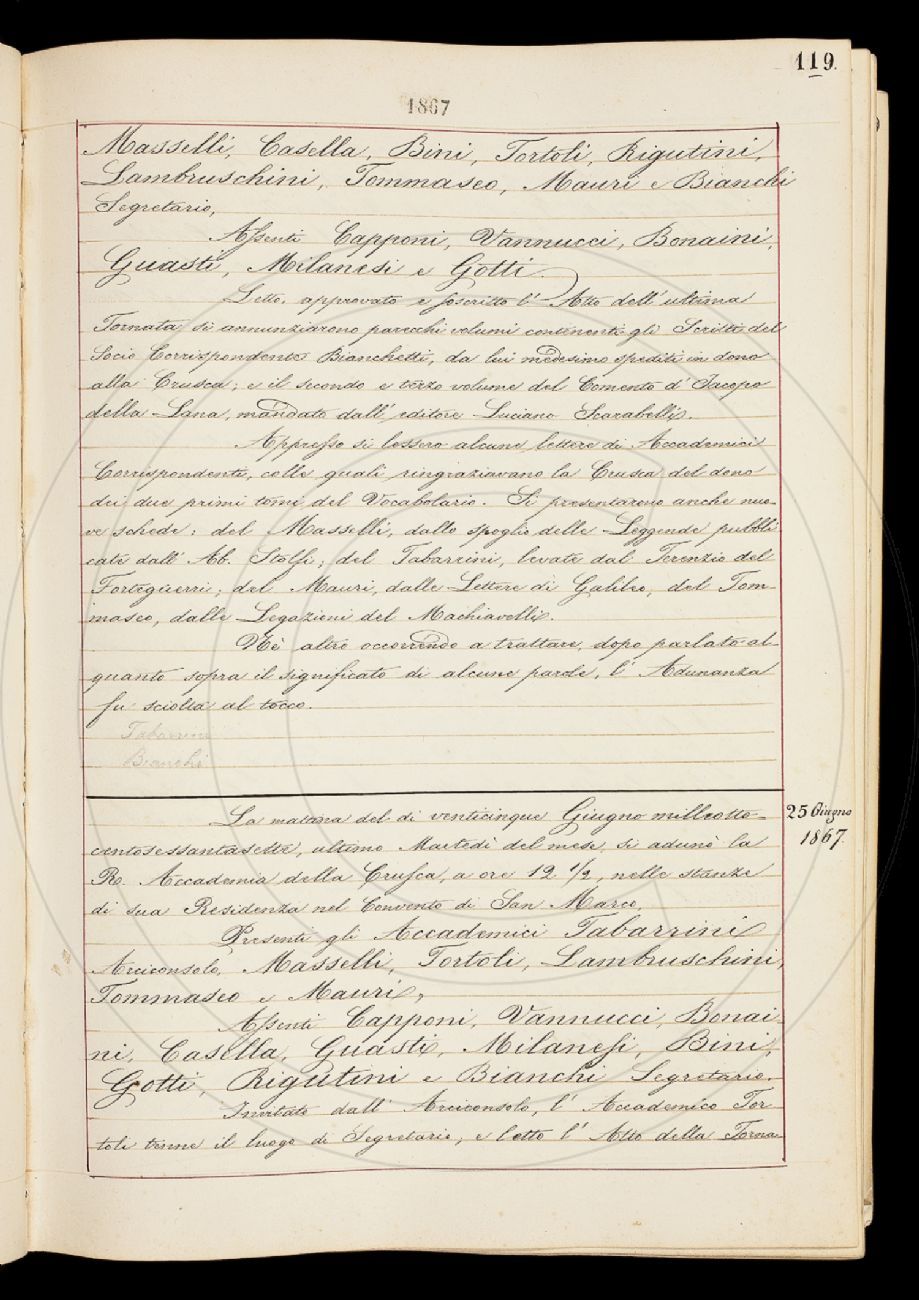 119.
1867
Masselli, Casella, Bini, Tortoli, Rigutini,
Lambruschini, Tommaseo, Mauri e Bianchi
Segretario,
Assenti Capponi, Vannucci, Bonaini,
Guasti, Milanesi e Gotti.
Letto, approvato e soscritto l'Atto dell'ultima
Tornata si annunziarono parecchi volumi contenenti gli Scritti del
Socio Corrispondente Bianchetti, da lui medesimo spediti in dono
alla Crusca; e il secondo e terzo volume del Comento d'Jacopo
della Lana, mandato dall'editore Luciano Scarabelli.
Appresso si lessero alcune lettere di Accademici
Corrispondenti, colle quali ringraziavano la Crusca del dono
dei due primi tomi del Vocabolario. Si presentarono anche nuo-
ve schede: del Masselli, dallo spoglio delle Leggende pubbli
cate dall'Ab. Stolfi; del Tabarrini, levate dal Terenzio del
Forteguerri; del Mauri, dalle Lettere di Galileo, del Tom-
maseo, dalle Legazioni del Machiavelli.
Nè altro occorrendo a trattare, dopo parlato al-
quanto sopra il significato di alcune parole, l'Adunanza
fu sciolta al tocco.
Tabarrini
Bianchi
25 Giugno
1867.
La matina del di venticinque Giugno milleotto-
centosessantasette, ultimo Martedì del mese, si adunò la
R. Accademia della Crusca, a ore 12 1/2, nelle stanze
di sua Residenza nel Convento di San Marco.
Presenti gli Accademici Tabarrini
Arciconsolo, Masselli, Tortoli, Lambruschini,
Tommaseo e Mauri,
Assenti Capponi, Vannucci, Bonai-
ni, Casella, Guasti, Milanesi, Bini,
Gotti, Rigutini e Bianchi Segretario.
Invitato dall'Arciconsolo, l'Accademico Tor
toli tenne il luogo di Segretario, e letto l'Atto della Torna-